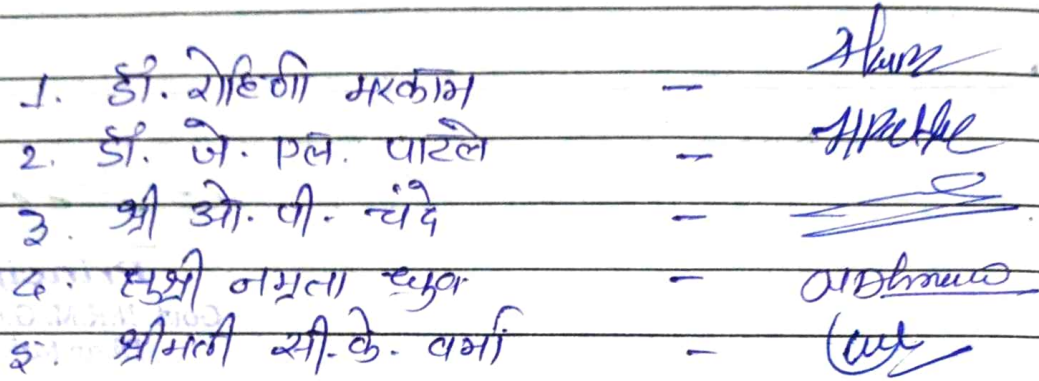 1. डॉ. रोहिणी मरकाम -
2. डॉ. जे. एल. पाटले -
3. श्री ओ. पी. चंदे -
4. सुश्री नम्रता ध्रुव -
5. श्रीमती सी. के. वर्मा -